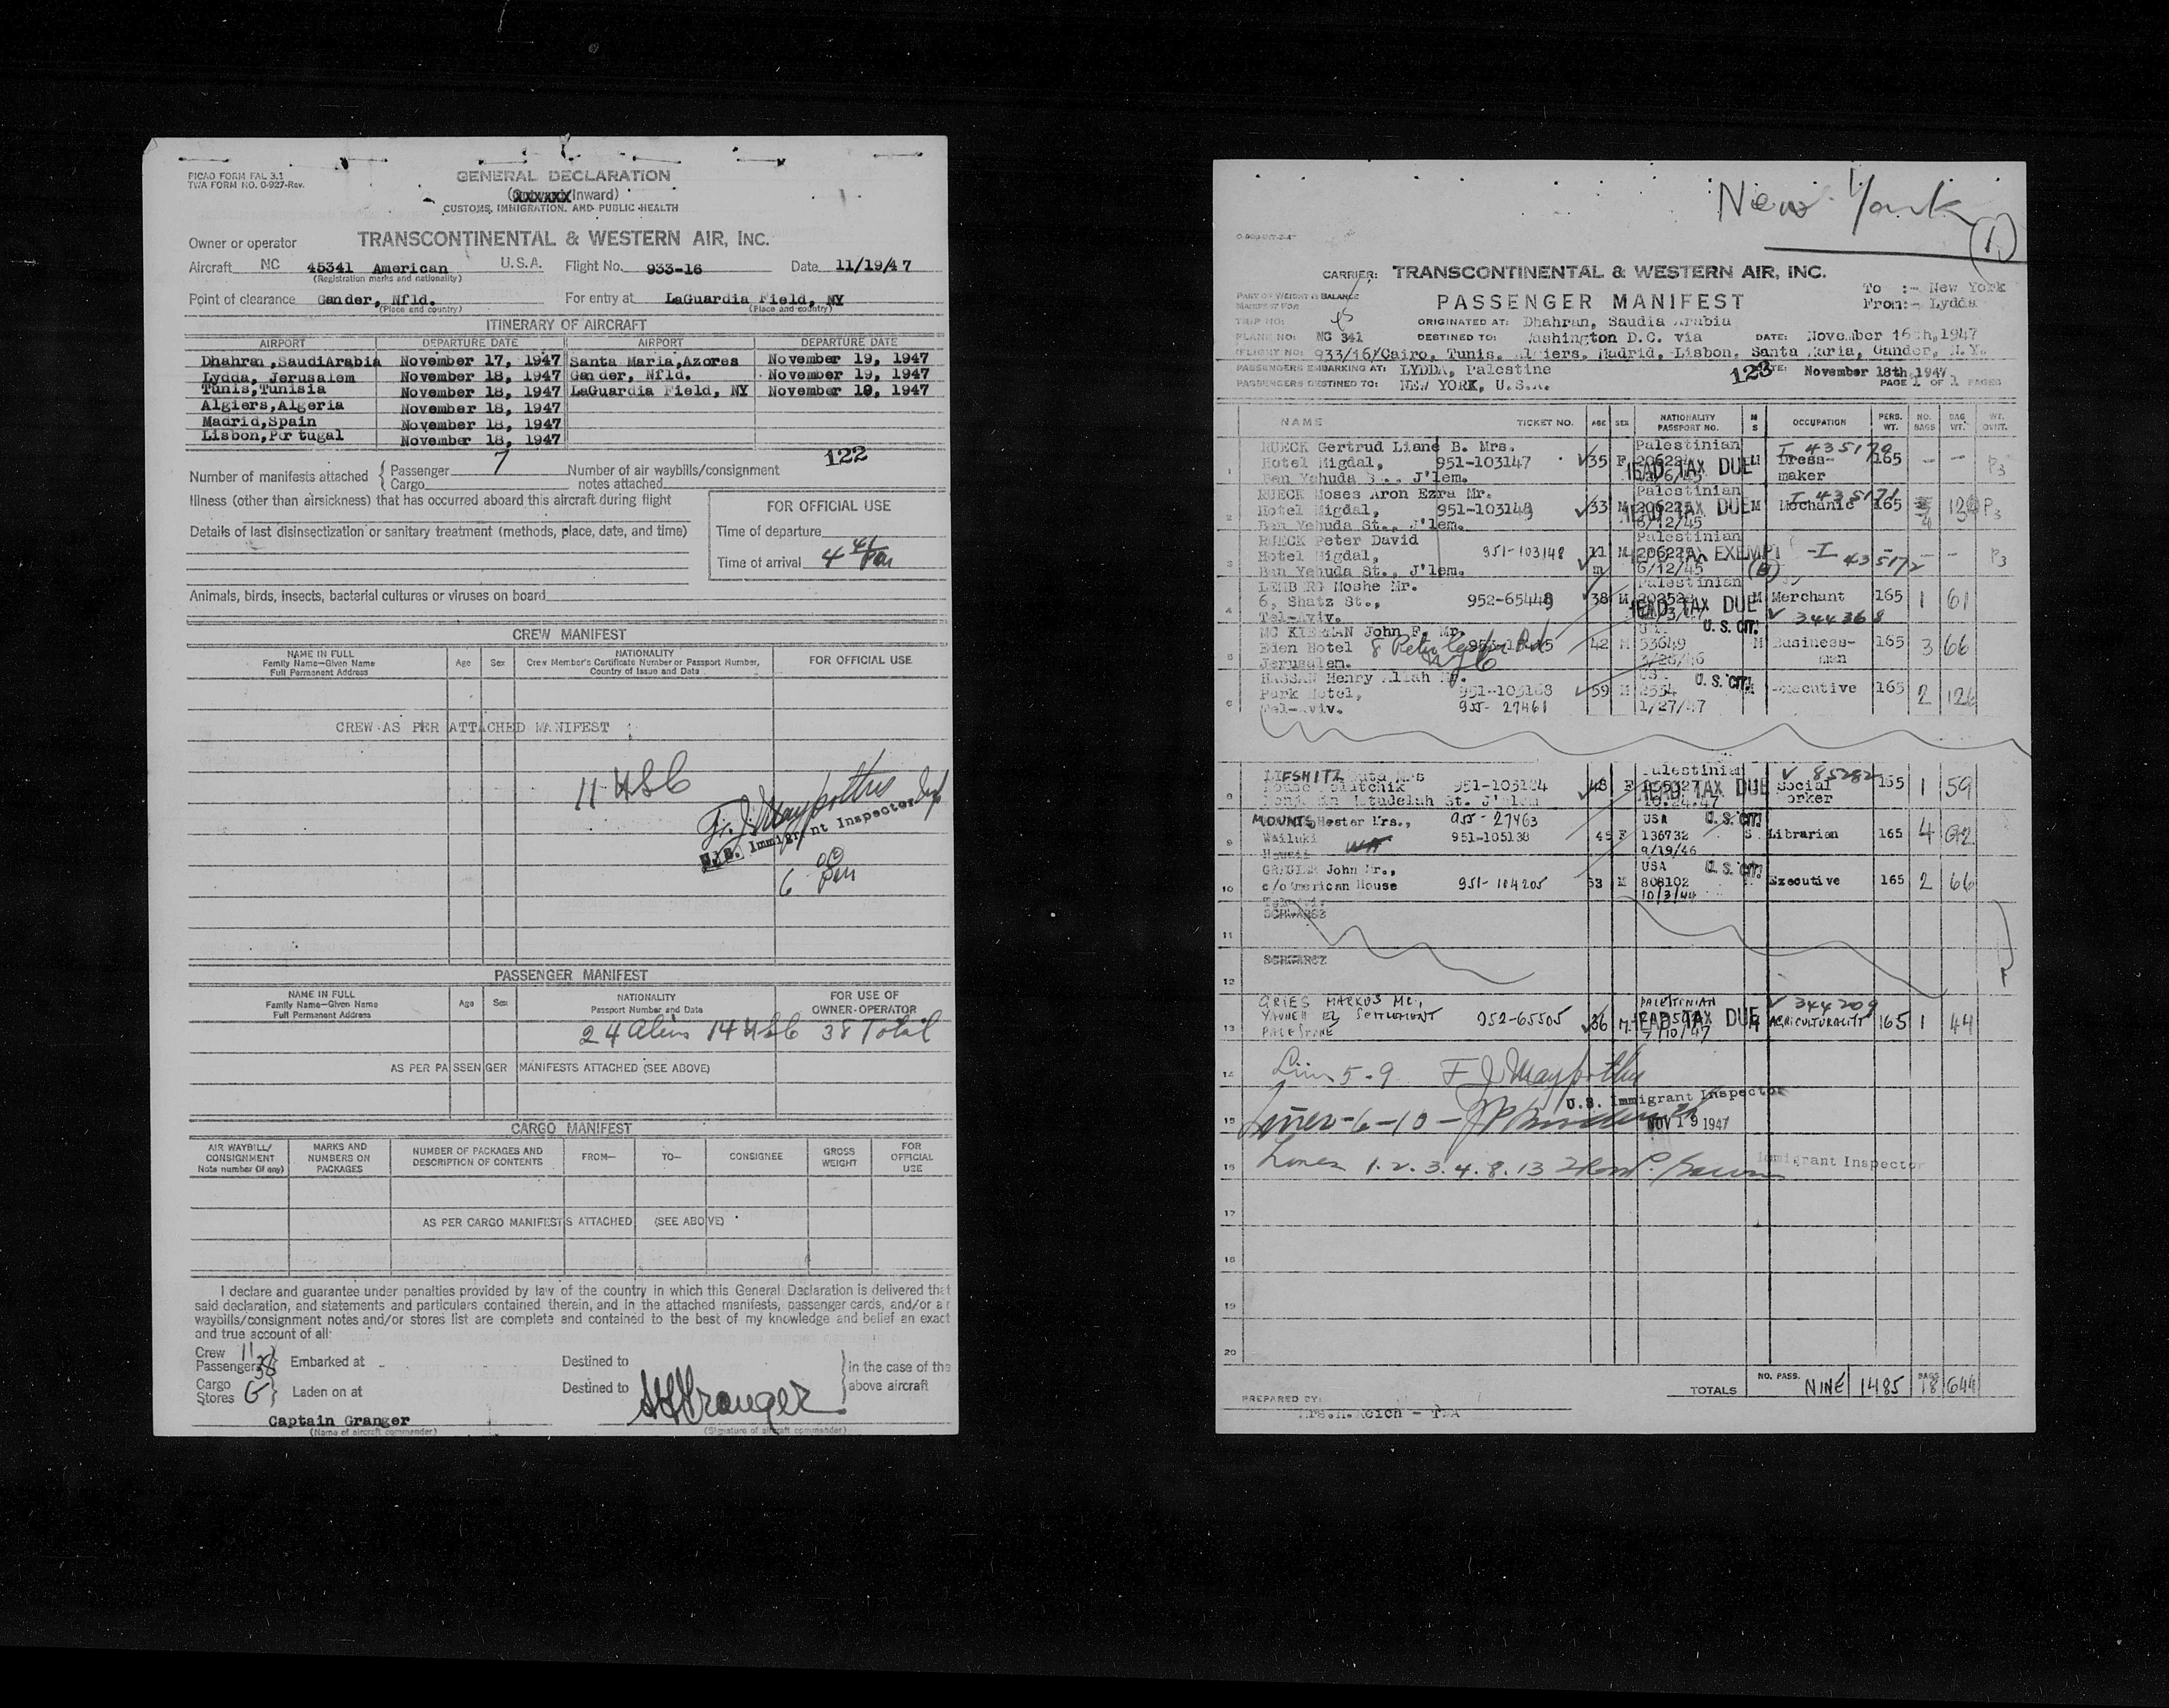 PICAO FORM FAL 3.1
TWA FORM NO. 0-927-Rev.
GENERAL DECLARATION
Inward)
CUSTOMS, IMMIGRATION, AND PUBLIC HEALTH
Owner or operator TRANSCONTINENTAL & WESTERN AIR, INC.
Aircraft NC 45341 American U.S.A. Flight No. 933-16 Date 11/19/47
(Registration marks and nationality)
Point of clearance Gander, Nfld. For entry at LaGuardia Field, NY
(Place and country) (Place and country)
ITINERARY OF AIRCRAFT
AIRPORT DEPARTURE DATE AIRPORT DEPARTURE DATE
Dhahran,SaudiArabia November 17, 1947 Santa Maria,Azores November 19, 1947
Lydda, Jerusalem November 18, 1947 Gander, Nfld. November 19, 1947
Tunis,Tunisia November 18, 1947 LaGuardia Field, NY November 19, 1947
Algiers,Algeria November 18, 1947
Madrid,Spain November 18, 1947
Lisbon,Portugal November 18, 1947
122
Number of manifests attached { Passenger 7 Number of air waybills/consignment
Cargo notes attached
Illness (other than airsickness) that has occurred aboard this aircraft during flight
FOR OFFICIAL USE
Details of last disinsectization or sanitary treatment (methods, place, date, and time)
Time of departure
Time of arrival 4 41 Pm
Animals, birds, insects, bacterial cultures or viruses on board
CREW MANIFEST
NAME IN FULL
Family Name—Given Name
Full Permanent Address
Age Sex
NATIONALITY
Crew Member's Certificate Number or Passport Number,
Country of Issue and Date
FOR OFFICIAL USE
CREW AS PER ATTACHED MANIFEST
11 USC
U.S. Immigrant Inspector
PASSENGER MANIFEST
NAME IN FULL
Family Name—Given Name
Full Permanent Address
Age Sex
NATIONALITY
Passport Number and Date
FOR USE OF
OWNER-OPERATOR
24 aliens 14 USC 38 Total
AS PER PASSENGER MANIFESTS ATTACHED (SEE ABOVE)
CARGO MANIFEST
AIR WAYBILL/
CONSIGNMENT
Note number (if any)
MARKS AND
NUMBERS ON
PACKAGES
NUMBER OF PACKAGES AND
DESCRIPTION OF CONTENTS
FROM— TO— CONSIGNEE
GROSS
WEIGHT
FOR
OFFICIAL
USE
AS PER CARGO MANIFESTS ATTACHED (SEE ABOVE)
I declare and guarantee under penalties provided by law of the country in which this General Declaration is delivered that
said declaration, and statements and particulars contained therein, and in the attached manifests, passenger cards, and/or air
waybills/consignment notes and/or stores list are complete and contained to the best of my knowledge and belief an exact
and true account of all:
Crew 11
Passengers 38 Embarked at Destined to in the case of the
Cargo
Stores Laden on at Destined to above aircraft
Captain Granger
(Name of aircraft commander) (Signature of aircraft commander)
New York
1
CARRIER: TRANSCONTINENTAL & WESTERN AIR, INC.
PART OF WEIGHT & BALANCE
MANIFEST FOR
PASSENGER MANIFEST
To :- New York
From:- Lydda
TRIP NO: ORIGINATED AT: Dhahran, Saudia Arabia
PLANE NO: NC 341 DESTINED TO: Washington D.C. via DATE: November 16th,1947
FLIGHT NO: 933/16/Cairo, Tunis, Algiers, Madrid, Lisbon, Santa Maria, Gander, N.Y.
PASSENGERS EMBARKING AT: LYDDA, Palestine 123 DATE: November 18th 1947
PASSENGERS DESTINED TO: NEW YORK, U.S.A. PAGE 1 OF 1 PAGES
NAME TICKET NO. AGE SEX NATIONALITY PASSPORT NO. M S OCCUPATION PERS. WT. NO. BAGS BAG WT. WT. OVWT.
RUECK Gertrud Liane B. Mrs. Palestinian I 435170
1 Hotel Migdal, 951-103147 35 F HEAD TAX DUE M Dress- 165 — —
Ben Yehuda St., J'lem. maker
RUECK Moses Aron Ezra Mr. Palestinian I 435171
2 Hotel Migdal, 951-103149 33 M HEAD TAX DUE M Mechanic 165
Ben Yehuda St., J'lem. 6/12/45
RUECK Peter David Palestinian
3 Hotel Migdal, 951-103148 11 M TAX EXEMPT I 435172 — —
Ben Yehuda St., J'lem. 6/12/45
LEMBERG Moshe Mr. Palestinian
4 6, Shatz St., 952-65448 38 M HEAD TAX DUE M Merchant 165 1 61
Tel-Aviv. V 344368
MC KIERNAN John F. Mr. U.S. CIT.
5 Eden Hotel 42 M 53649 M Business- 165 3 66
Jerusalem. man
HASSAN Henry Allah Mr. U.S. CIT.
6 Park Hotel, 951-103168 59 M 2554 Executive 165 2 126
Tel-Aviv. 955-27461 1/27/47
LIFSHITZ Mrs Palestinian V 85282
951-103184 48 F HEAD TAX DUE Social 165 1 59
St. J'lem Worker
MOUNTS Hester Mrs., 955-27463 USA U.S. CIT.
9 Wailuki 951-103138 45 F 136732 S Librarian 165 4 92
Hawaii 9/19/46
John Mr., USA U.S. CIT.
10 c/o American House 951-104205 53 M 808102 Executive 165 2 66
Tel-Aviv 10/3/44
SCHWARCZ
11
12 SCHWARCZ
GRIES MARKUS MR., PALESTINIAN V 344209
13 YAVNEH EL SETTLEMENT 952-65505 36 M HEAD TAX DUE AGRICULTURALIST 165 1 44
PALESTINE 7/10/47
14 Lines 5-9
U.S. Immigrant Inspector
15 Lines-6-10- NOV 19 1947
16 Lines 1.2.3.4.8.13 Immigrant Inspector
17
18
19
20
TOTALS NO. PASS. NINE 1485 BAGS 18 644
PREPARED BY:
Mrs.H.Reich - TWA